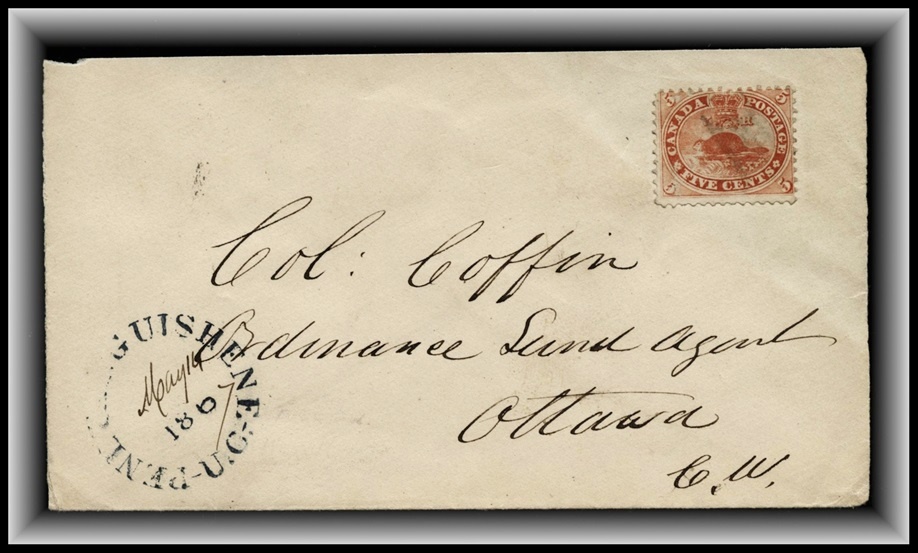 5 5
CANADA POSTAGE
FIVE CENTS
5 5
Col: Coffin
Ordinance Land Agent
Ottawa
C.W.
GUISHENE-U.C-PEN
May 14
1867